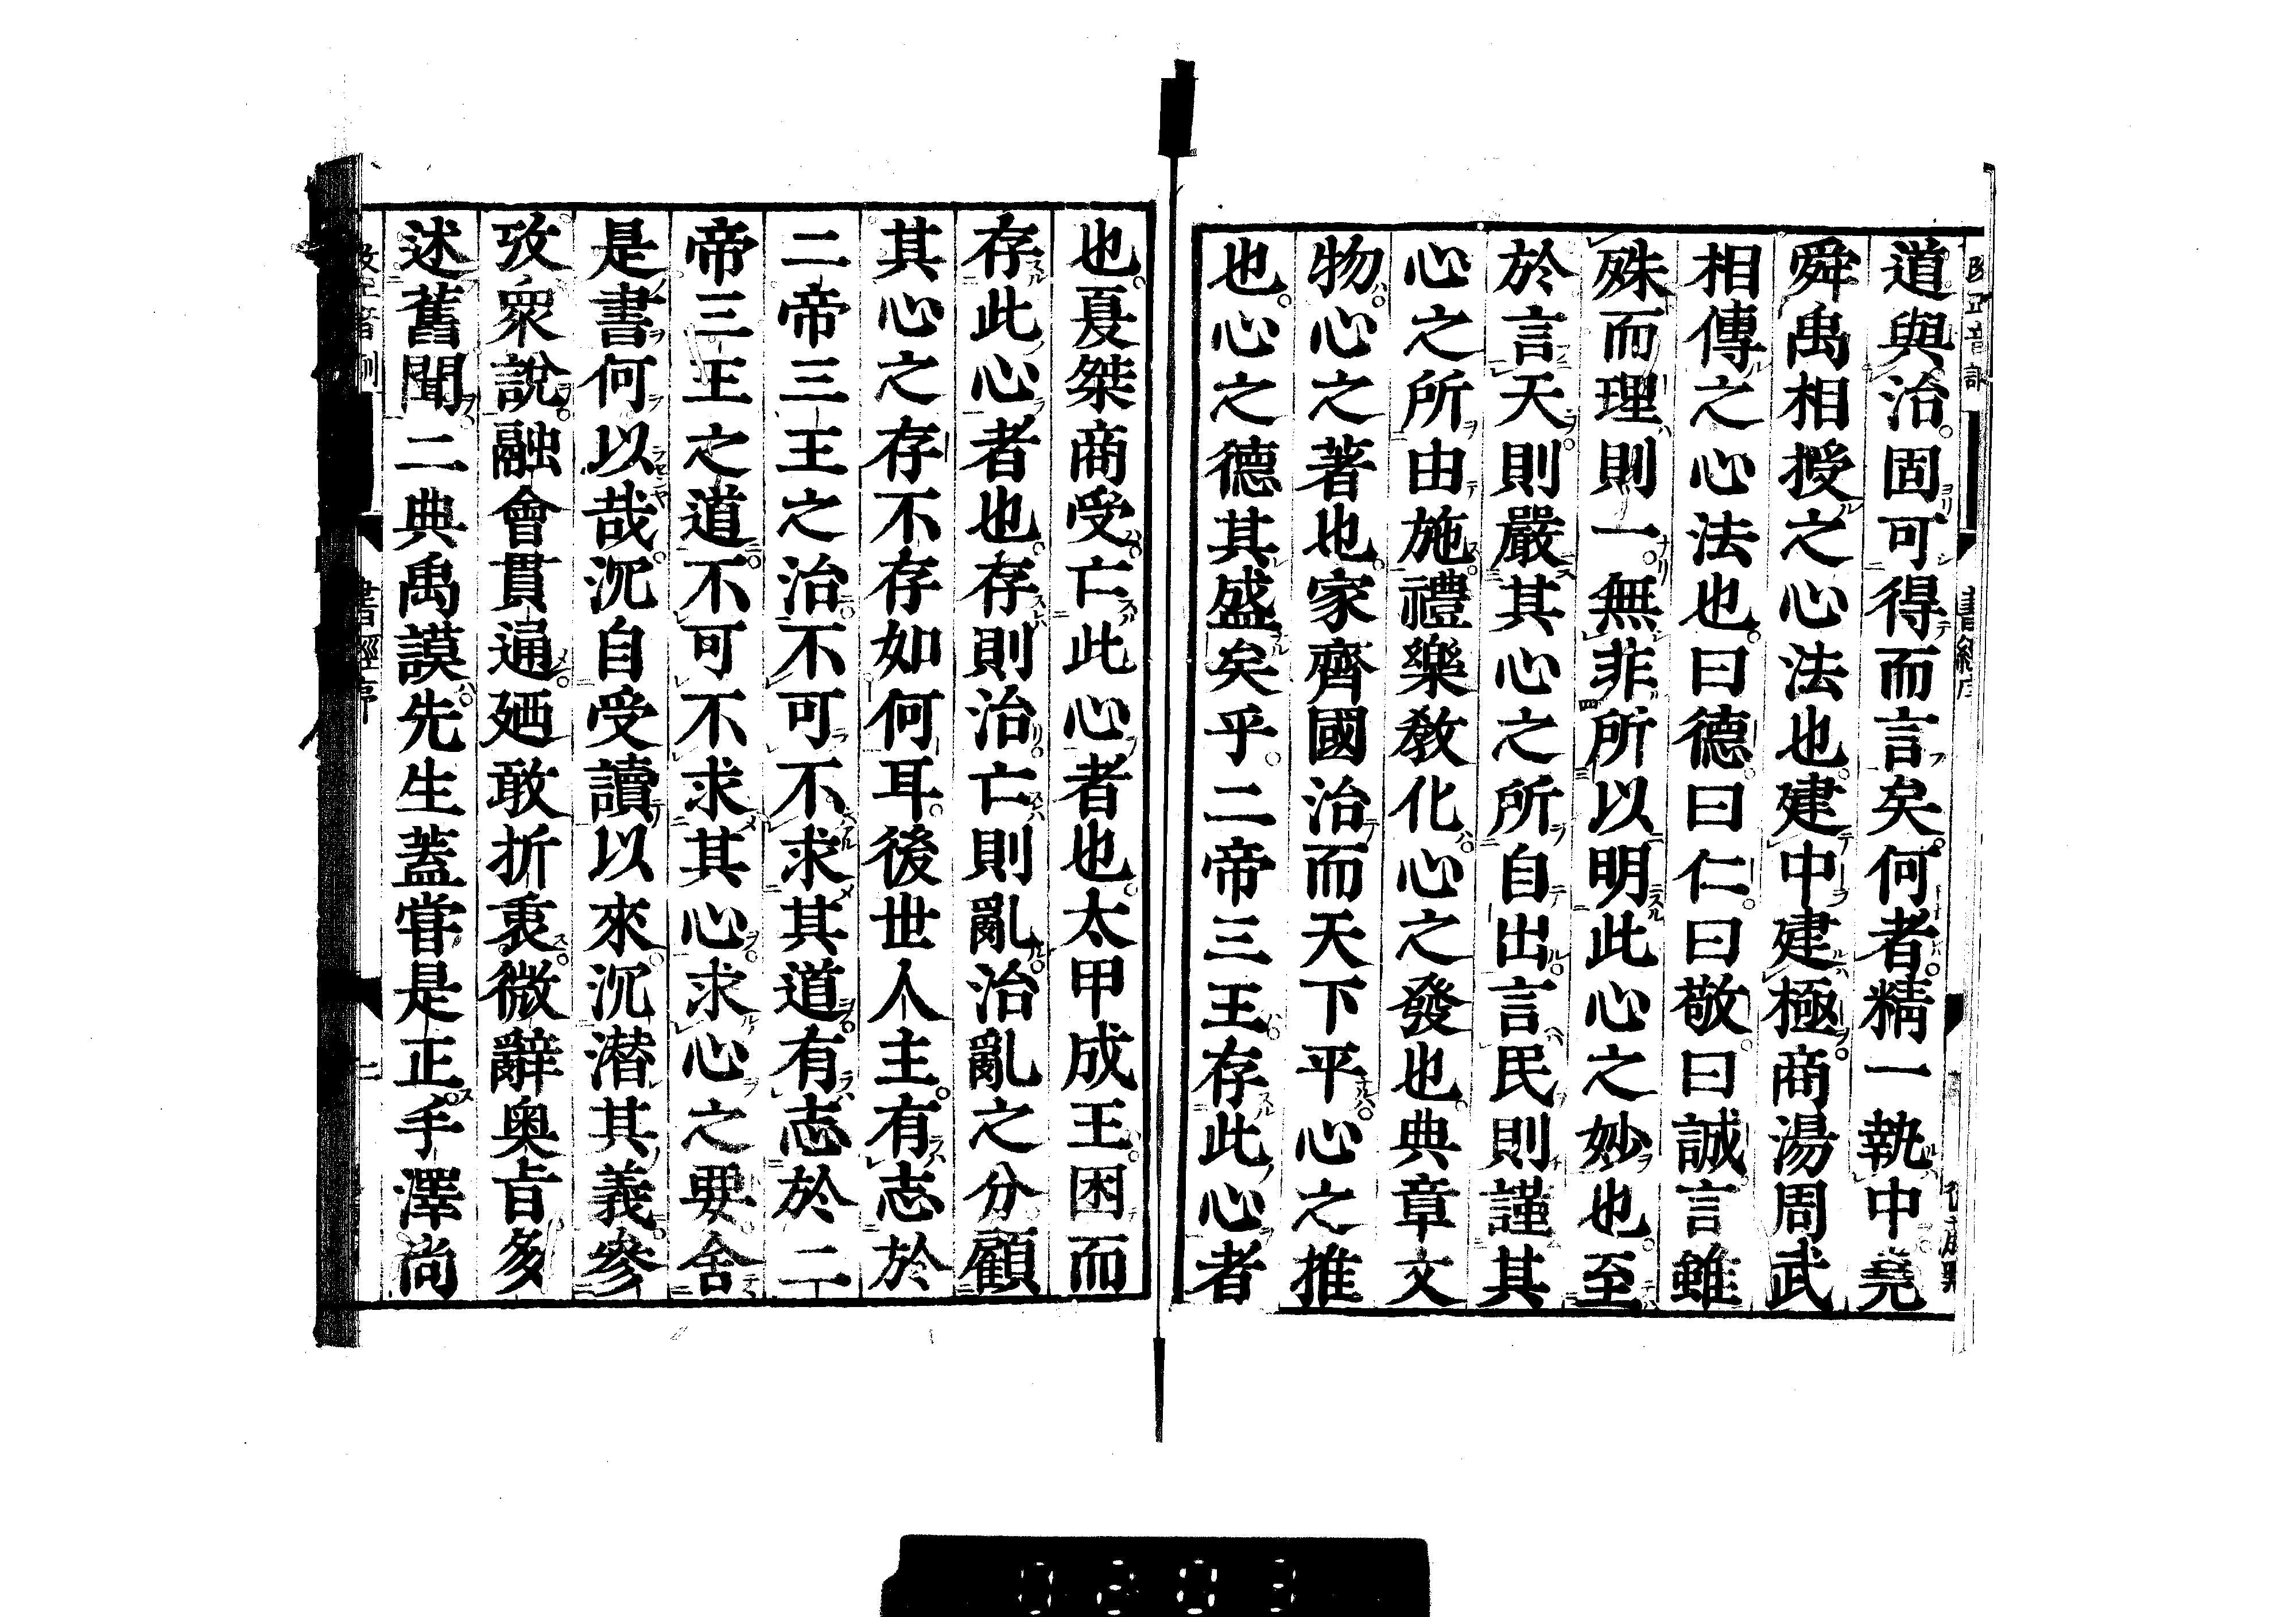 道與治固可得而言矣何者精一執中堯
舜禹相授之心法也建中建極商湯周武
相傳之心法也曰德曰仁曰敬曰誠言雖
殊而理則一無非所以明此心之妙也至
於言天則嚴其心之所自出言民則謹其
心之所由施禮樂教化心之發也典章文
物心之著也家齊國治而天下平心之推
也心之德其盛矣乎二帝三王存此心者
也夏桀商受亡此心者也太甲成王困而
存此心者也存則治亡則亂治亂之分顧
其心之存不存如何耳後世人主有志於
二帝三王之治不可不求其道有志於二
帝三王之道不可不求其心求心之要舍
是書何以哉沉自受讀以來沉潜其義參
攷衆說融會貫通廼敢折衷微辭奥旨多
述舊聞二典禹謨先生蓋嘗是正手澤尚
書經序